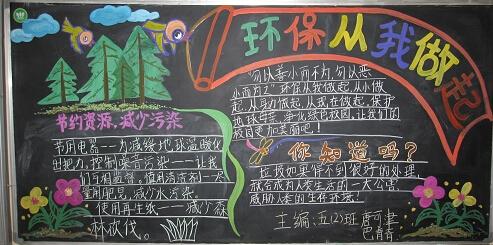 环保从我做起
节约资源,减少污染
节用电器——为减缓地球温暖化
出把力,控制噪音污染——让我
们互相监督,慎用清洁剂——尽
量用肥皂,减少水污染。
使用再生纸——减少森
林砍伐。
"勿以善小而不为,勿以恶
小而为之"环保从我做起,从小做
起,从身边做起,从现在做起,保护
地球
让我们的
校园更加美丽吧!
你知道吗?
垃圾如果得不到很好的处理
就会成为人类生活的一大公害,
威胁人类的生存环境!
主编:五(2)班